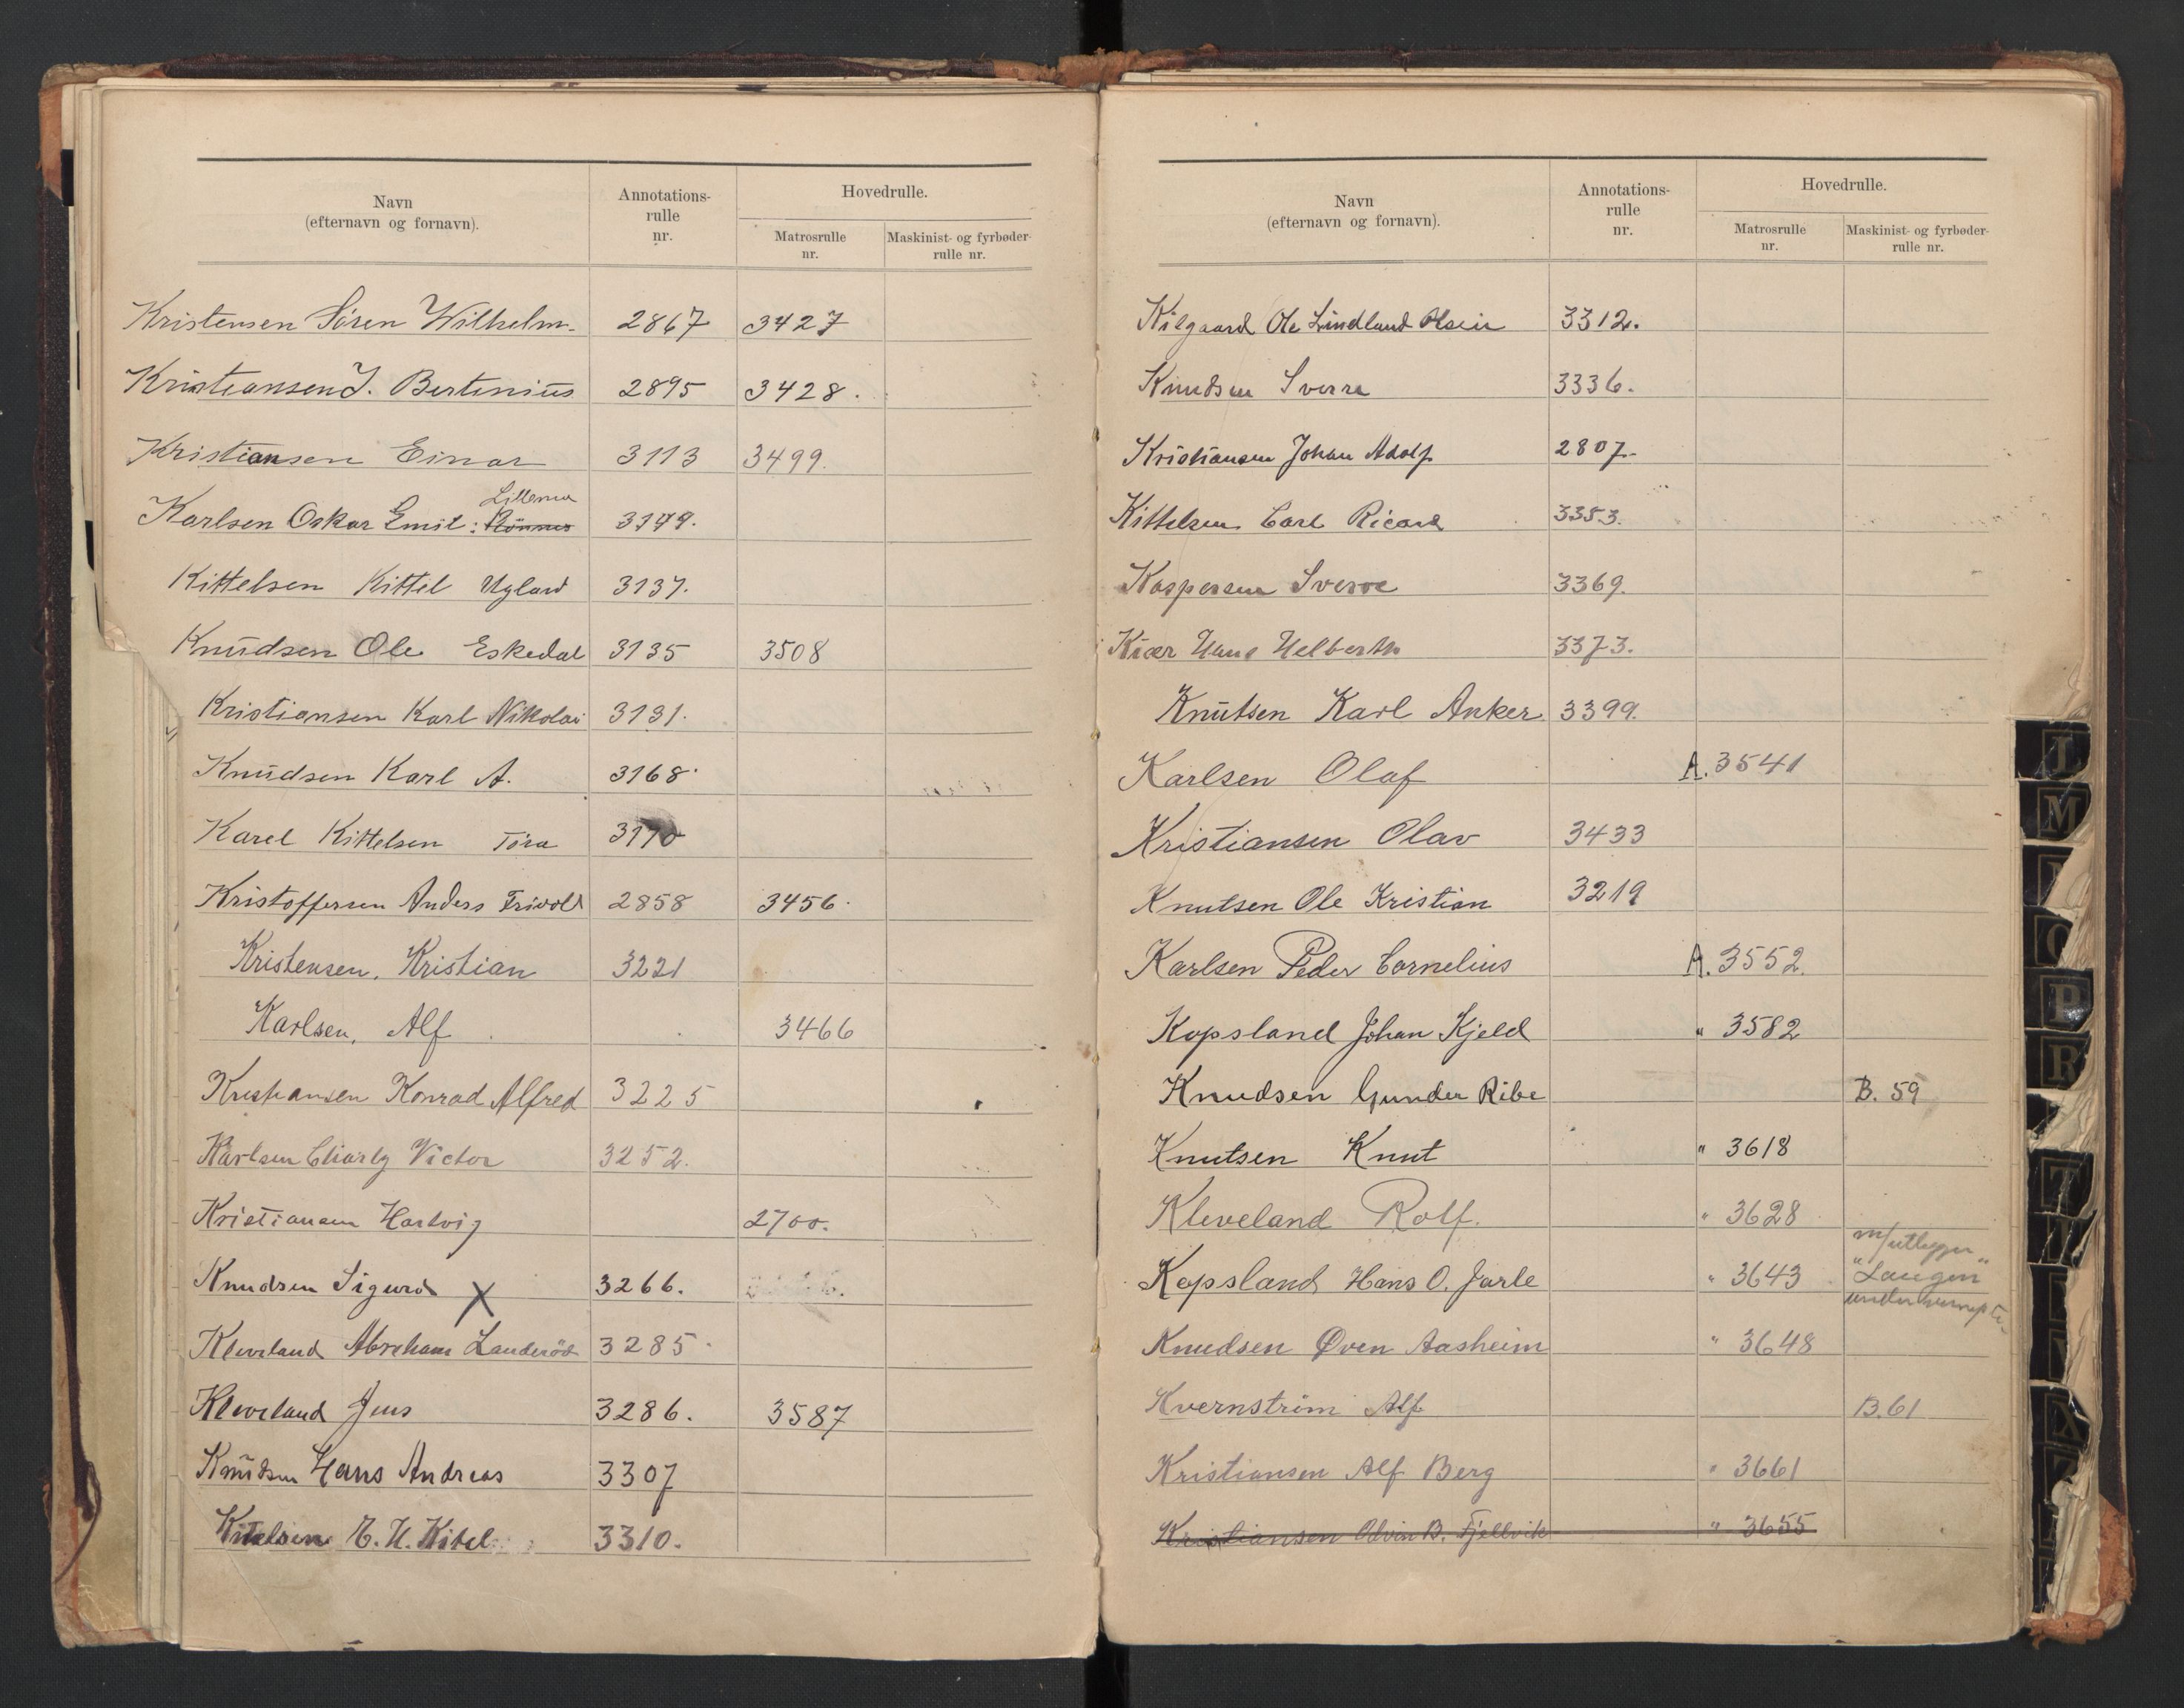 Navn
(efternavn og fornavn).
Annotations-
rulle
nr.
Hovedrulle.
Matrosrulle
nr.
Maskinist- og fyrbøder-
rulle nr.
Kristensen Sören Wilhelm. 2867 3427
Kristiansen J. Bertinius 2895 3428.
Kristiansen Einar 3113 3499.
Lillemo
Karlsen Oskar Emil: 3149.
Kittelsen Kittel Ugland 3137.
Knudsen Ole Eskedal 3135 3508
Kristiansen Karl Nikolai 3131.
Knudsen Karl A. 3168.
Karel Kittelsen Töra 3170
Kristoffersen Anders Trivold 2858 3456.
Kristensen, Kristian 3221
Karlsen, Alf 3466
Kristiansen Konrad Alfred 3225
Karlsen Charly Victor 3252.
Kristiansen Hartvig 2700.
Knudsen Sigurd X 3266.
Kleveland Abraham Landeröd 3285.
Kleveland Jens 3286. 3587
Knudsen Hans Andreas 3307
Kitelsen T. H. Kitel 3310.
Navn
(efternavn og fornavn).
Annotations-
rulle
nr.
Hovedrulle.
Matrosrulle
nr.
Maskinist- og fyrbøder-
rulle nr.
Kilgaard Ole Lindland Olsen 3312.
Knudsen Sverre 3336.
Kristiansen Johan Adolf 2807.
Kittelsen Carl Ricard 3353.
Kaspersen Sverre 3369.
Kiær Hans Helberth 3373.
Knutsen Karl Anker 3399.
Karlsen Olaf A. 3541
Kristiansen Olav 3433
Knutsen Ole Kristian 3219
Karlsen Peder Cornelius A. 3552.
Kopsland Johan Kjeld " 3582
Knudsen Gunder Ribe B. 59
Knutsen Knut " 3618
Kleveland Rolf. " 3628
m/utlegger
Kopsland Hans O. Jarle " 3643 "Laugen"
Knudsen Øven Aasheim " 3648
Kvernström Alf B. 61
Kristiansen Alf Berg " 3661
Kristiansen Odvin B. Fjellvik " 3655
I
M
P
R
T
X